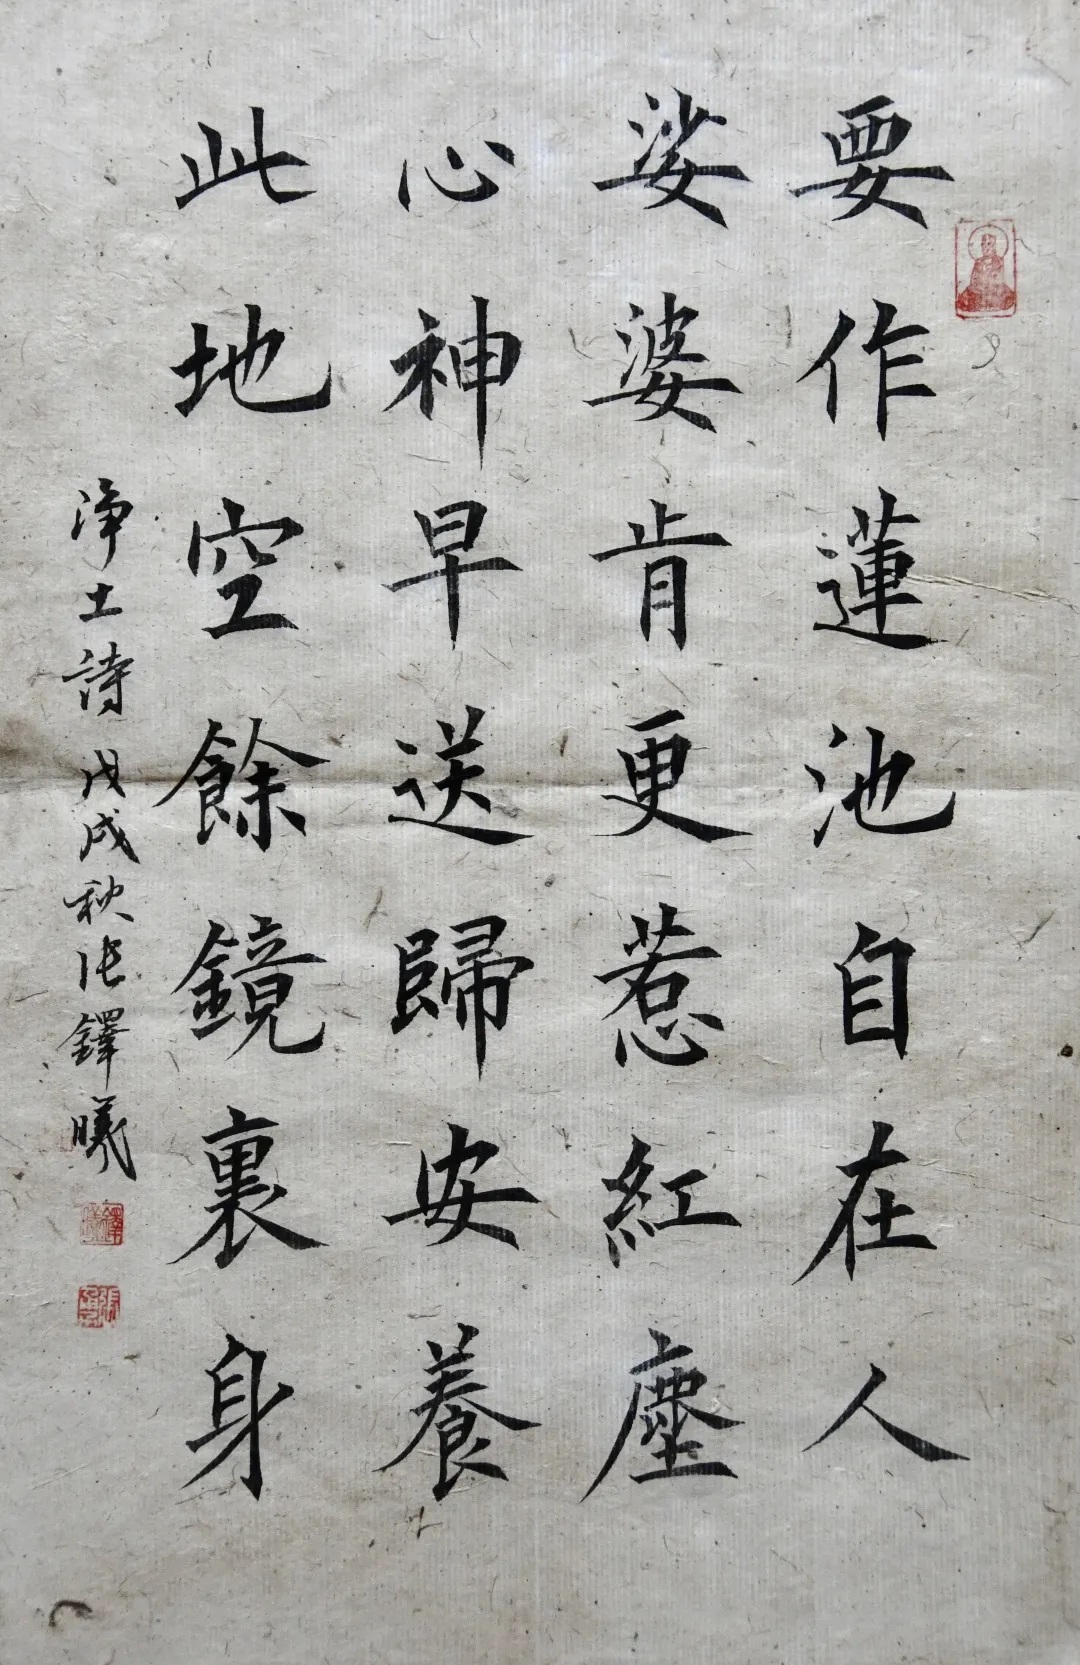 要作蓮池自在人
娑婆肯更惹紅塵
心神早送歸安養
此地空餘鏡裏身
淨土詩 戊戌秋 張鐸曦